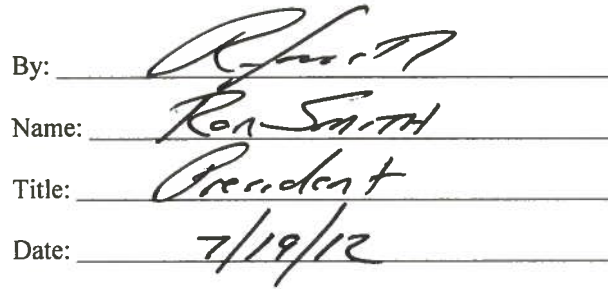 By: R Smith
Name: Ron Smith
Title: President
Date: 7/19/12